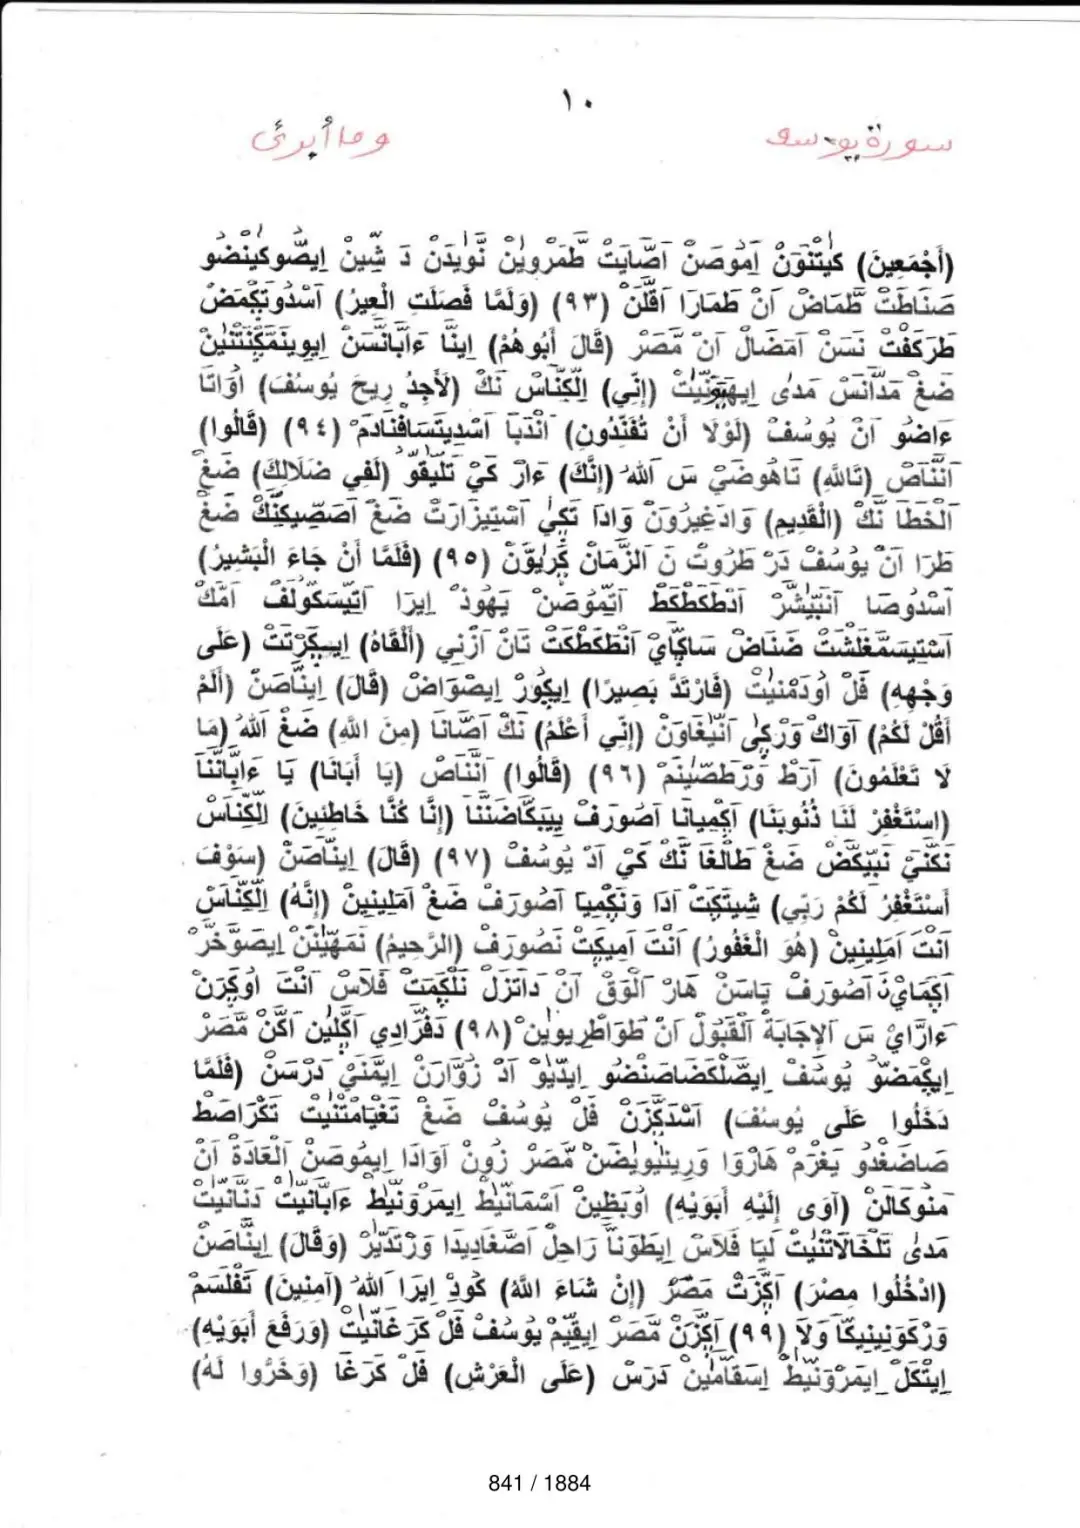 ١٠
سورة يوسف
وما أبرئ
(أَجْمَعِينَ) كَيْتَنَوَنْ اِمُوصَنْ اَصَّايَتْ طَّمَرْوِيْنْ نَّوَيدَنْ دَ شِّينْ اِيصُّوكِينَضُو
صَنَاطَتْ طَّمَاضْ اَنْ طَمَارَا اَقَّلَنْ (٩٣) (وَلَمَّا فَصَلَتِ الْعِيرُ) اَسْدُوتَكْمَضْ
طَرَكَفْتْ نَسَنْ اَمَضَالْ اَنْ مَّصَرْ (قَالَ أَبُوهُمْ) اِينَّا ءَابَانَّسَنْ
ضَغْ مَدَّانَسْ مَدىٰ (إِنِّي) اِلْكِنَّاسْ نَكْ (لَأَجِدُ رِيحَ يُوسُفَ) اُوَاتَا
ءَاضُو اَنْ يُوسُفْ (لَوْلَا أَنْ تُفَنِّدُونِ) اَنْدَبَا (٩٤) (قَالُوا)
اَنَّنَاصْ (تَاللَّهِ) تَاهُوضَيْ سَ اَللهُ (إِنَّكَ) ءَارْ كَيْ تَلِّيقَوْ (لَفِي ضَلَالِكَ) ضَغْ
اَلْخَطَا نَّكْ (الْقَدِيمِ) وَادَغِيرُونْ وَادَا تَكِىٰ اَسْتِيزَارَتْ ضَغْ ضَغْ
طَرَا اَنْ يُوسُفْ دَرْ طَرُوتْ نَ اَلزَّمَانْ (٩٥) (فَلَمَّا أَنْ جَاءَ الْبَشِيرُ)
اَسْدُوصَا اَنَبَّشَّرْ اَدْطَكَطْكَطْ اَتِّمُوصَنْ يَهُوذْ اِيرَا اَتِّيسَكُولَفْ اَمَّكْ
ضَنَاضْ سَاكَّايْ اَنْطَكَطْكَتْ تَانْ اَزْنِي (أَلْقَاهُ) (عَلَى
وَجْهِهِ) فَلْ اُودَمْنِيتْ (فَارْتَدَّ بَصِيرًا) اِيكُورْ اِيصْوَاضْ (قَالَ) اِينَّاصَنْ (أَلَمْ
أَقُلْ لَكُمْ) اَوَاكْ وَرْكِىٰ اَنَّيغَاوَنْ (إِنِّي أَعْلَمُ) نَكْ اَصَّانَا (مِنَ اللَّهِ) ضَغْ اَللهُ (مَا
لَا تَعْلَمُونَ) اَرَطْ وَّرْطَصِّينَمْ (٩٦) (قَالُوا) اَنَّنَاصْ (يَا أَبَانَا) يَا ءَابَانَّنَا
(اسْتَغْفِرْ لَنَا ذُنُوبَنَا) اَكْمِيانَا اَصُورَفْ يِيبَكَّاضَنَّنَا (إِنَّا كُنَّا خَاطِئِينَ) اِلْكِنَّاسْ
نَكَنَيْ نَبَيْكَّضْ ضَغْ طَالَغَا نَّكْ كَيْ اَدْ يُوسُفْ (٩٧) (قَالَ) اِينَّاصَنْ (سَوْفَ
أَسْتَغْفِرُ لَكُمْ رَبِّي) شِيتَكِتْ اَدَا وَنَكْمِيَا اَصُورَفْ ضَغْ اَمَلِينِينْ (إِنَّهُ) اِلْكِنَّاسْ
اَنْتَ اَمَلِينِينْ (هُوَ الْغَفُورُ) اَنْتَ اَمِيكَتْ نَصُورَفْ (الرَّحِيمُ) نَمَهَّيْنَنْ اِيصَوَخَّرْ
اَكَمَايْنْ اَصُورَفْ يَاسَنْ هَارْ اَلْوَقْ اَنْ دَاتَزَلْ نَلْكِمَتْ فَلَاسْ اَنْتَ اُوكَرَنْ
ءَارَّايْ سَ اَلْاِجَابَةْ اَلْقَبُولْ اَنْ طَوَاطِرِيوِيْن (٩٨) دَفْرَادِي اَكَّلِينْ اَكَّنْ مَّصَرْ
اِيكَمَضَوْ يُوسُفْ اِيصَّلْكَضَاصَنَضُو اِيدِّيَوْ اَدْ زُوَارَنْ اِيمَّنَيْ دَرْسَنْ (فَلَمَّا
دَخَلُوا عَلَى يُوسُفَ) اَسْدَكَّزَنْ فَلْ يُوسُفْ ضَغْ تَغْيَامْتَنَيْتْ تَكْرَاصَطْ
صَاضَغْدُو يَغْرَمْ هَارْوَا مَّصَرْ زُونْ اَوَادَا اِيمُوصَنْ اَلْعَادَةْ اَنْ
مَنُوكَالَنْ (آوَى إِلَيْهِ أَبَوَيْهِ) اُوبَظِينْ اَسْمَانِّيطْ اِيمَرْوَنَيْطْ ءَابَانَّيتْ دَنَّانَّيتْ
مَدىٰ تَلْخَالَاتْنَيْتْ لَيَا فَلَاسْ اِيطَوَنَّا رَاحِلْ اَصْغَادِيدَا وَرْتَدِّيرْ (وَقَالَ) اِينَّاصَنْ
(ادْخُلُوا مِصْرَ) اَكَّزَتْ مَصَرْ (إِنْ شَاءَ اللَّهُ) كُودْ اِيرَا اَللهُ (آمِنِينَ) تَفْلَسَمْ
وَرْكَوَنِينِيكَا وَلَا (٩٩) اَكَّزَنْ مَّصَرْ اِيقِيَّمْ يُوسُفْ فَلْ كَرَغَانَّيتْ (وَرَفَعَ أَبَوَيْهِ)
اِيتْكَلْ اِيمَرْوَنَيْطْ اِسَقَّامِينْ دَرَسْ (عَلَى الْعَرْشِ) فَلْ كَرَغَا (وَخَرُّوا لَهُ)
841 / 1884